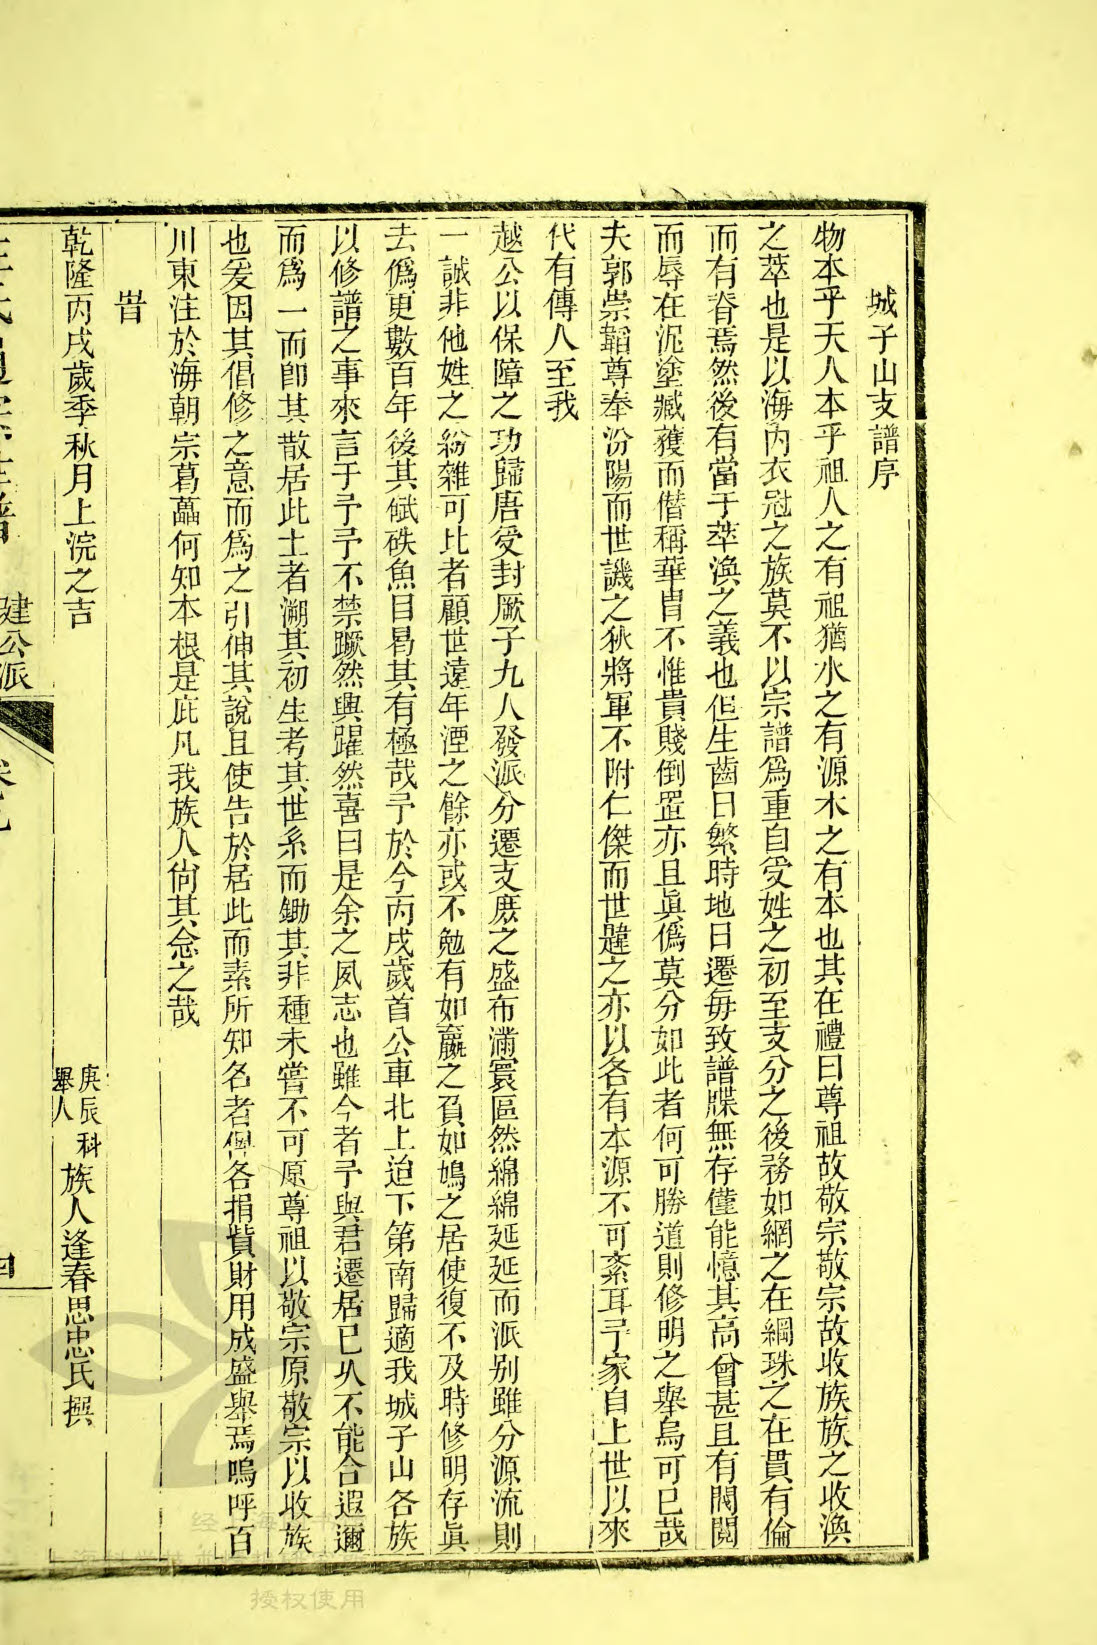 城子山支譜序
物本乎天人本乎祖人之有祖猶水之有源木之有本也其在禮曰尊祖故敬宗敬宗故收族族之收渙
之萃也是以海內衣冠之族莫不以宗譜爲重自受姓之初至支分之後務如網之在綱珠之在貫有倫
而有脊焉然後有當于萃渙之義也但生齒日繁時地日遷每致譜牒無存僅能憶其高曾甚且有閥閱
而辱在泥塗臧獲而僭稱華胄不惟貴賤倒置亦且眞僞莫分如此者何可勝道則修明之舉烏可已哉
夫郭崇韜尊奉汾陽而世譏之狄將軍不附仁傑而世韙之亦以各有本源不可紊耳予家自上世以來
代有傳人至我
越公以保障之功歸唐受封厥子九人發派分遷支庶之盛布滿寰區然綿綿延延而派别雖分源流則
一誠非他姓之紛雜可比者顧世遠年湮之餘亦或不勉有如蠃之負如鳩之居使復不及時修明存眞
去僞更數百年後其碔砆魚目曷其有極哉予於今丙戌歲首公車北上迨下第南歸適我城子山各族
以修譜之事來言于予予不禁蹶然興躍然喜曰是余之夙志也雖今者予與君遷居已久不能合遐邇
而爲一而卽其散居此土者溯其初生考其世系而鋤其非種未嘗不可原尊祖以敬宗原敬宗以收族
也爰因其倡修之意而爲之引伸其說且使告於居此而素所知名者俾各捐貲財用成盛舉焉嗚呼百
川東注於海朝宗葛藟何知本根是庇凡我族人尙其念之哉
旹
乾隆丙戌歲季秋月上浣之吉
庚辰科
舉人
族人逢春思忠氏撰
建公派
四
授权使用